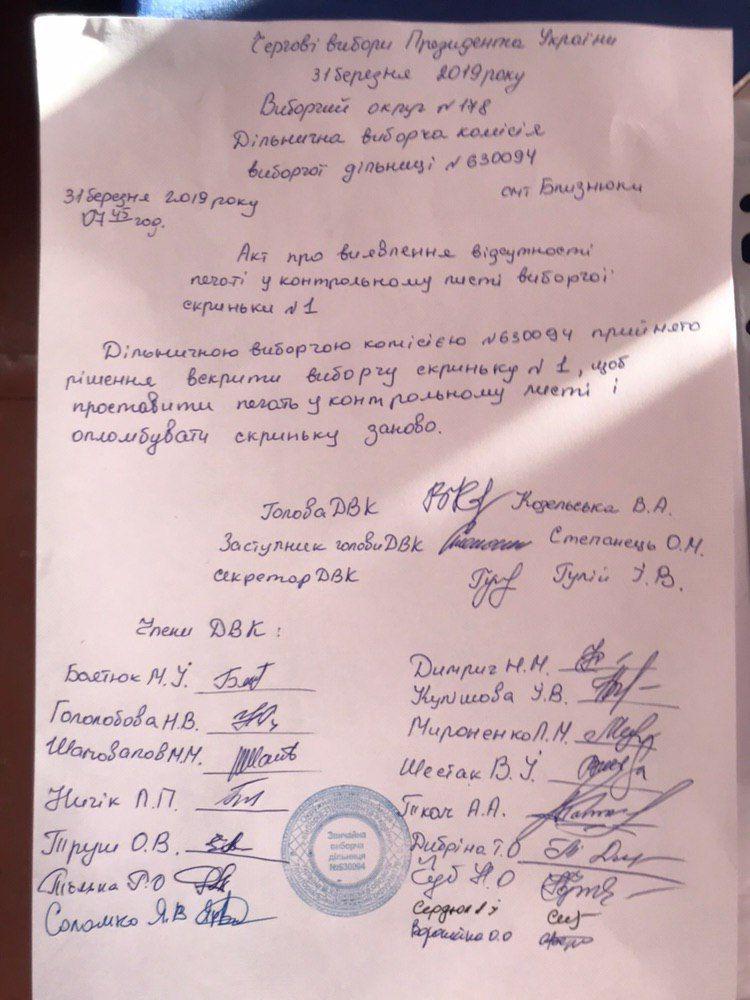 Чергові вибори Президента України
31 березня 2019 року
Виборчий округ №178
Дільнична виборча комісія
виборчої дільниці №630094
31 березня 2019 року
смт Близнюки
07 45 год.
Акт про виявлення відсутності
печаті у контрольному листі виборчої
скриньки №1
Дільничною виборчою комісією №630094 прийнято
рішення вскрити виборчу скриньку №1, щоб
проставити печать у контрольному листі і
опломбувати скриньку заново.
Голова ДВК Козельська В.А.
Заступник голови ДВК Степанець О.М.
секретар ДВК Гулій І.В.
Члени ДВК:
М.І.
Гололобова Н.В.
Шаповалов М.М.
П.П.
О.В.
Р.О
Соломко Я.В
Н.М.
Кулішова І.В.
Мироненко Л.М
Шестак В.І.
Ткач А.А.
Дибріна Т.О
Чуб Н.О
Сердюк
О.О
Звичайна
виборча
дільниця
№630094